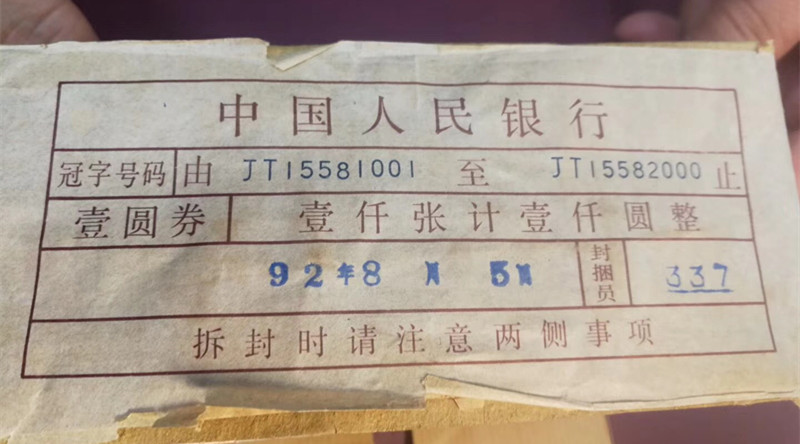 中国人民银行
冠字号码 由 JT15581001 至 JT15582000 止
壹圆券 壹仟张计壹仟圆整
92年8月5日 封捆员 337
拆封时请注意两侧事项